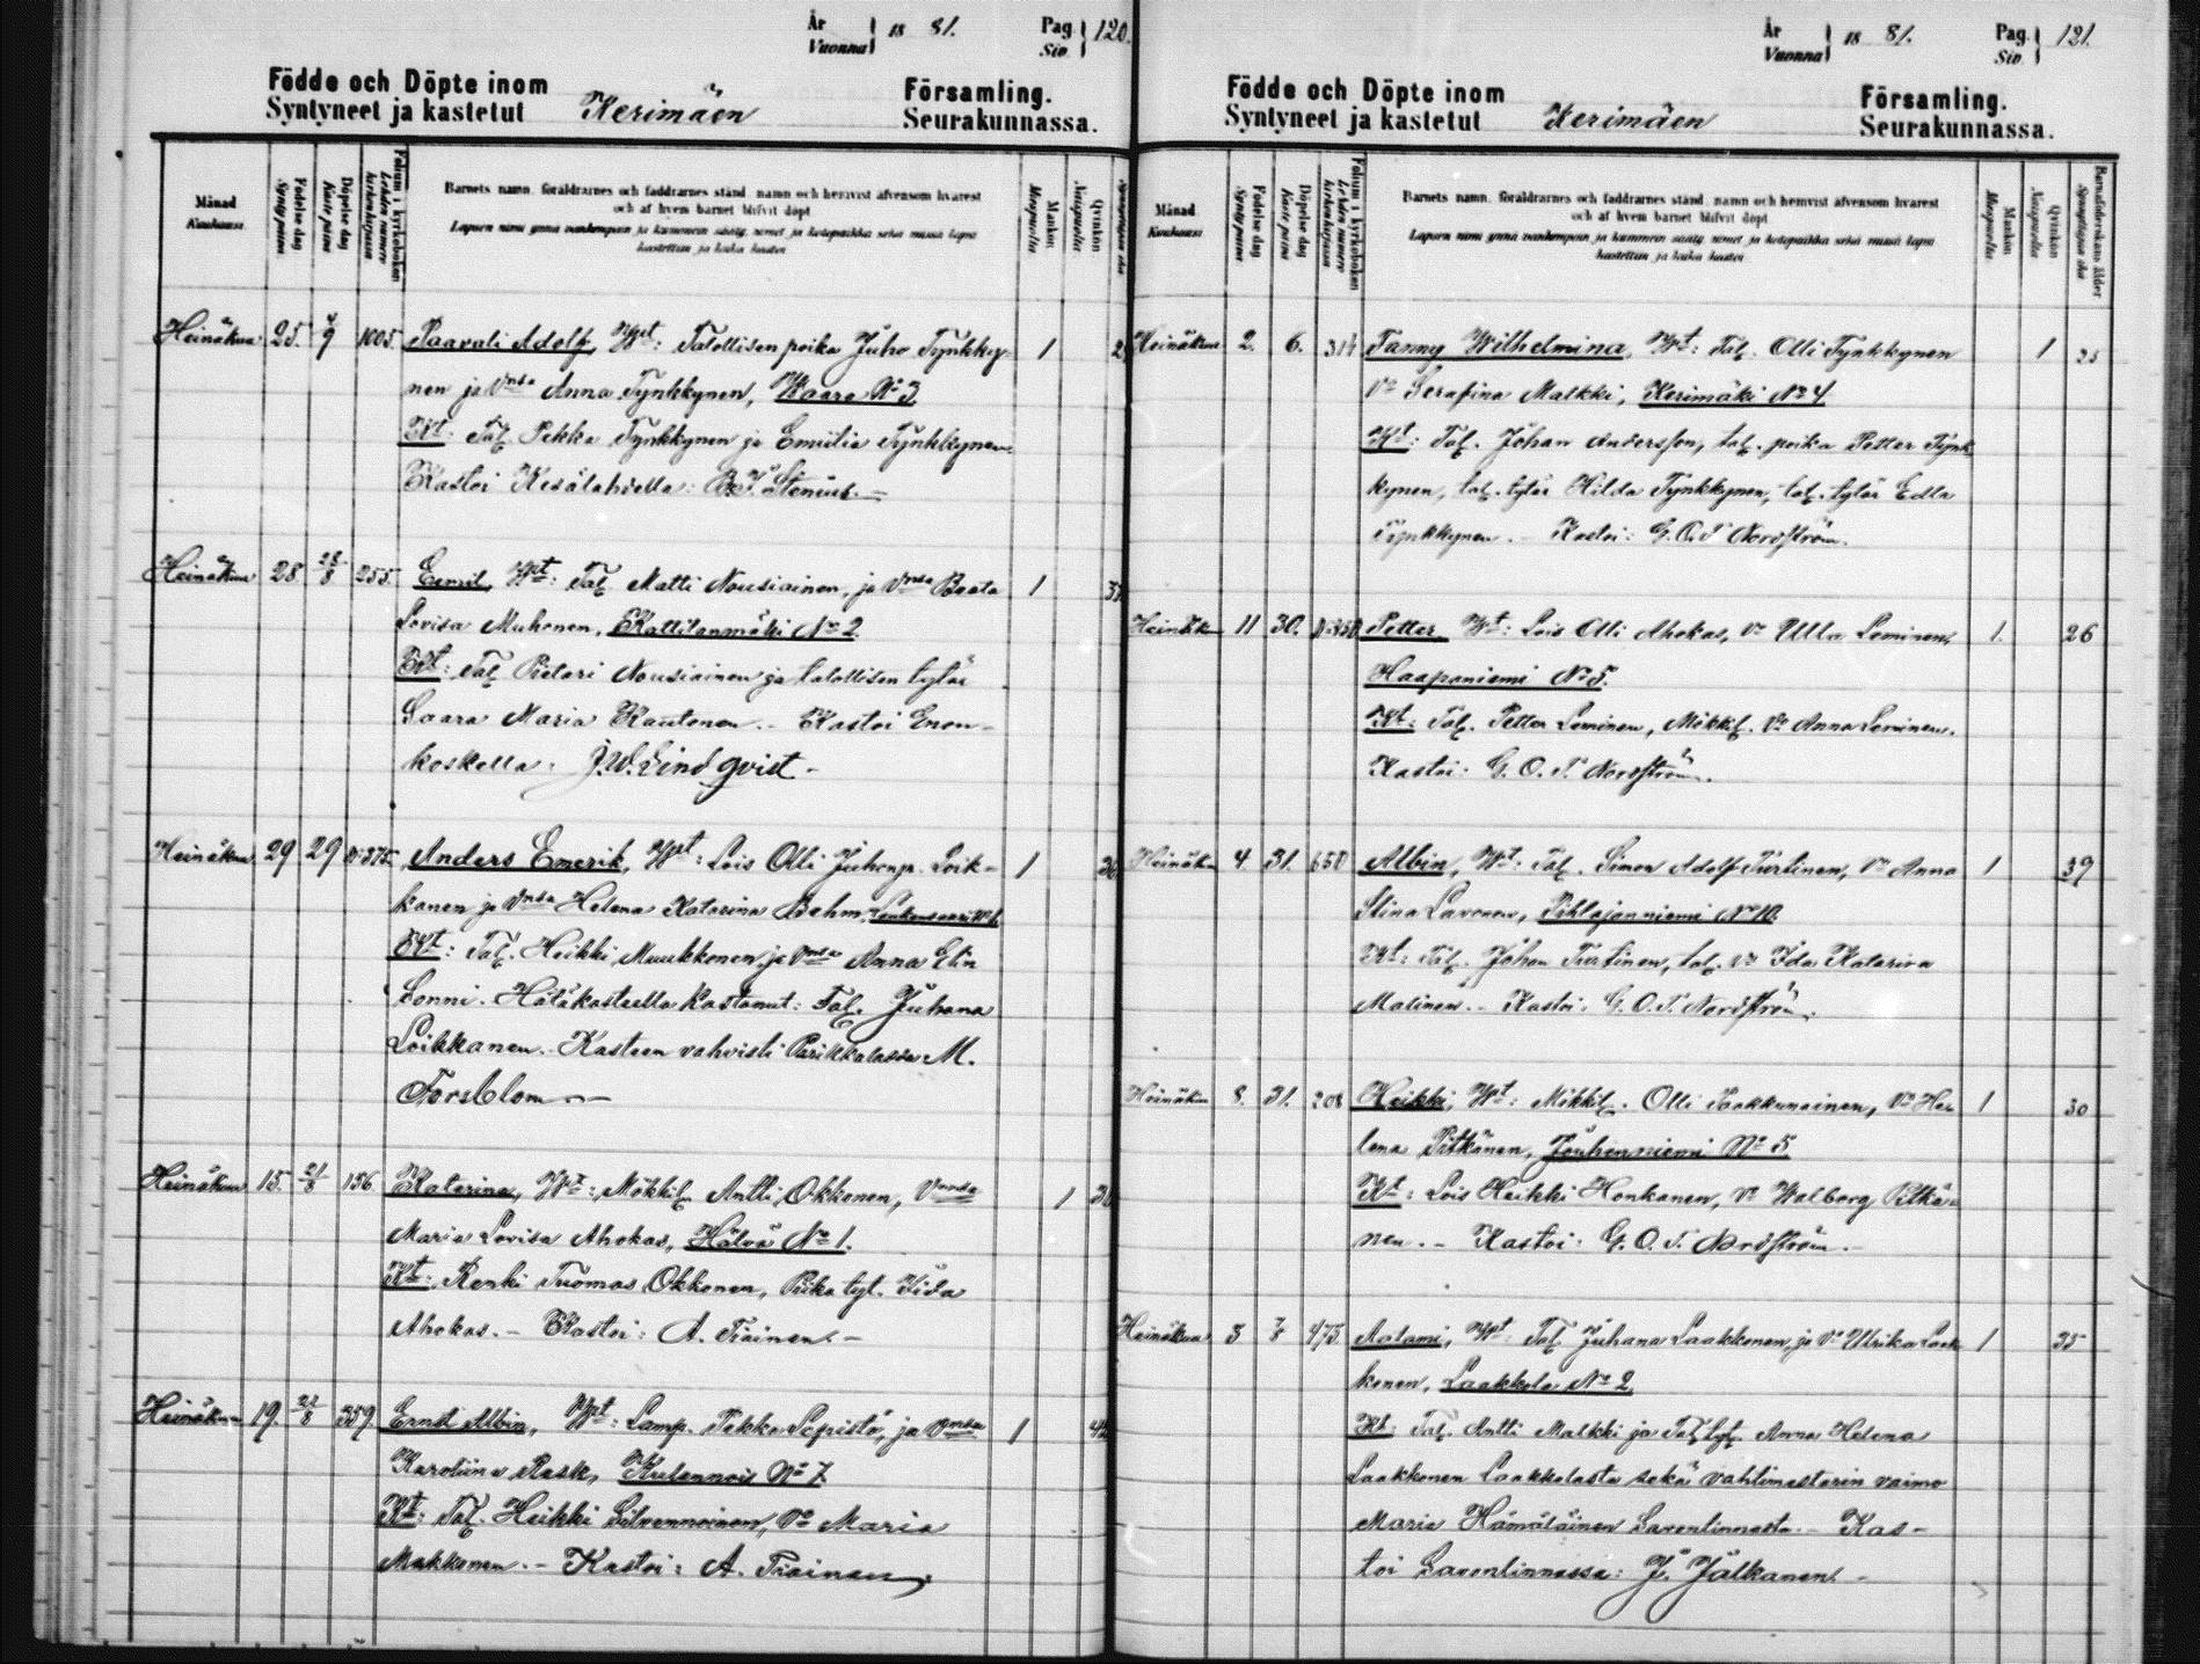 År Vuonna 18 81. Pag. Siv. 120.
Födde och Döpte inom Församling.
Syntyneet ja kastetut Kerimäen Seurakunnassa.
Månad Kuukausi
Födelse dag Syntypäivä
Döpelse dag Kastepäivä
Folium i kyrkoboken Lehden numero kirkonkirjassa
Barnets namn, föräldrarnes och faddrarnes stånd, namn och hemvist äfvensom hvarest
och af hvem barnet blifvit döpt
Lapsen nimi ynnä vanhempain ja kummein sääty, nimet ja kotopaikka sekä missä lapsi
kastettiin ja kuka kastoi
Mankön Miespuolia
Qvinkön Naispuolia
Heinäkuu 25. 9 1005. Paavali Adolf, Wmt: Talollisen poika Juho Tynkky- 1
nen ja Vmsa Anna Tynkkynen, Waara No 3
Kt: Tal. Pekka Tynkkynen ja Emilia Tynkkynen.
Kastoi Kesälahdella: B. J. Stenius. –
Heinäkuu 28 28/8 255. Eemil, Wmt: Tal. Matti Nousiainen, ja Vmsa Beata 1
Lovisa Muhonen, Kattilanmäki No 2.
Kt: Tal. Pietari Nousiainen ja talollisen tytär
Saara Maria Rautonen. – Kastoi Enon-
koskella. J. W. Lindqvist –
Heinäkuu 29 29 375. Anders Emerik, Wmt: Lois Olli Juhonp. Loik- 1
kanen ja Vmsa Helena Katarina Behm,
Kt: Tal. Heikki Muukkonen ja Vmsa Anna Elin
Sonni. Hätäkasteella kastanut: Tal. Juhana
Loikkanen. Kasteen vahvisti Parikkalassa M.
Forsblom. –
Heinäkuu 15. 21/8 156 Katarina, Wt: Mökkil. Antti Okkonen, Vmsa 1
Maria Lovisa Ahokas, Hälvä No 1.
Kt: Renki Tuomas Okkonen, Piika tyt. Iida
Ahokas. – Kastoi: A. Tiainen. –
Heinäkuu 19. 21/8 359. Ernst Albin, Wmt: Lamp. Pekka Sepistö, ja Vmsa 1
Karoliina Rask, Kulennois No 7.
Kt: Tal. Heikki Silvennoinen, Vo Maria
Makkonen. – Kastoi: A. Tiainen.
År Vuonna 18 81. Pag. Siv. 121.
Födde och Döpte inom Församling.
Syntyneet ja kastetut Kerimäen Seurakunnassa.
Månad Kuukausi
Födelse dag Syntypäivä
Döpelse dag Kastepäivä
Folium i kyrkoboken Lehden numero kirkonkirjassa
Barnets namn, föräldrarnes och faddrarnes stånd, namn och hemvist äfvensom hvarest
och af hvem barnet blifvit döpt
Lapsen nimi ynnä vanhempain ja kummein sääty, nimet ja kotopaikka sekä missä lapsi
kastettiin ja kuka kastoi
Mankön Miespuolia
Qvinkön Naispuolia
Barnaföderskans ålder Synnyttäjän ikä
Heinäkuu 2. 6. 314 Fanny Wilhelmina, Wt: Tal. Olli Tynkkynen 1 25
Vo Serafina Malkki, Kerimäki No 4
Kt: Tal. Johan Andersson, tal. poika Petter Tynk
kynen, tal. tytär Hilda Tynkkynen, tal. tytär Edla
Tynkkynen. – Kastoi: G. O. T. Nordström.
Heinäk. 11 30. Petter Wt: Lois Olli Ahokas, Vo Ulla Leminen, 1. 26
Haapaniemi No 5.
Kt: Tal. Petter Leminen, Mökkil. Vo Anna Leminen.
Kastoi: G. O. T. Nordström.
Heinäk. 4. 31. 650 Albin, Wt: Tal. Simon Adolf Turtinen, Vo Anna 1 39
Stina Lavonen, Pihlajanniemi No 10.
Kt: Tal. Johan Turtinen, tal. Vo Ida Katarina
Malinen. – Kastoi: G. O. T. Nordström.
Heinäkuu 8. 31. 208 Heikki, Wt: Mökkil. Olli Paakkunainen, Vo He- 1 30
lena Pitkänen, Jouhenniemi No 5
Kt: Lois Heikki Honkanen, Vo Walborg Pitkä-
nen. – Kastoi: G. O. T. Nordström. –
Heinäkuu 3 7/8 475. Aatami, Wt: Tal. Juhana Laakkonen, ja Vo Ulrika Laak 1 35
konen, Laakkola No 2
Kt: Tal. Antti Malkki ja Tal. tyt. Anna Helena
Laakkonen Laakkolasta sekä vahtimestarin vaimo
Maria Hämäläinen Savonlinnasta. – Kas-
toi Savonlinnassa: J. Jalkanen. –